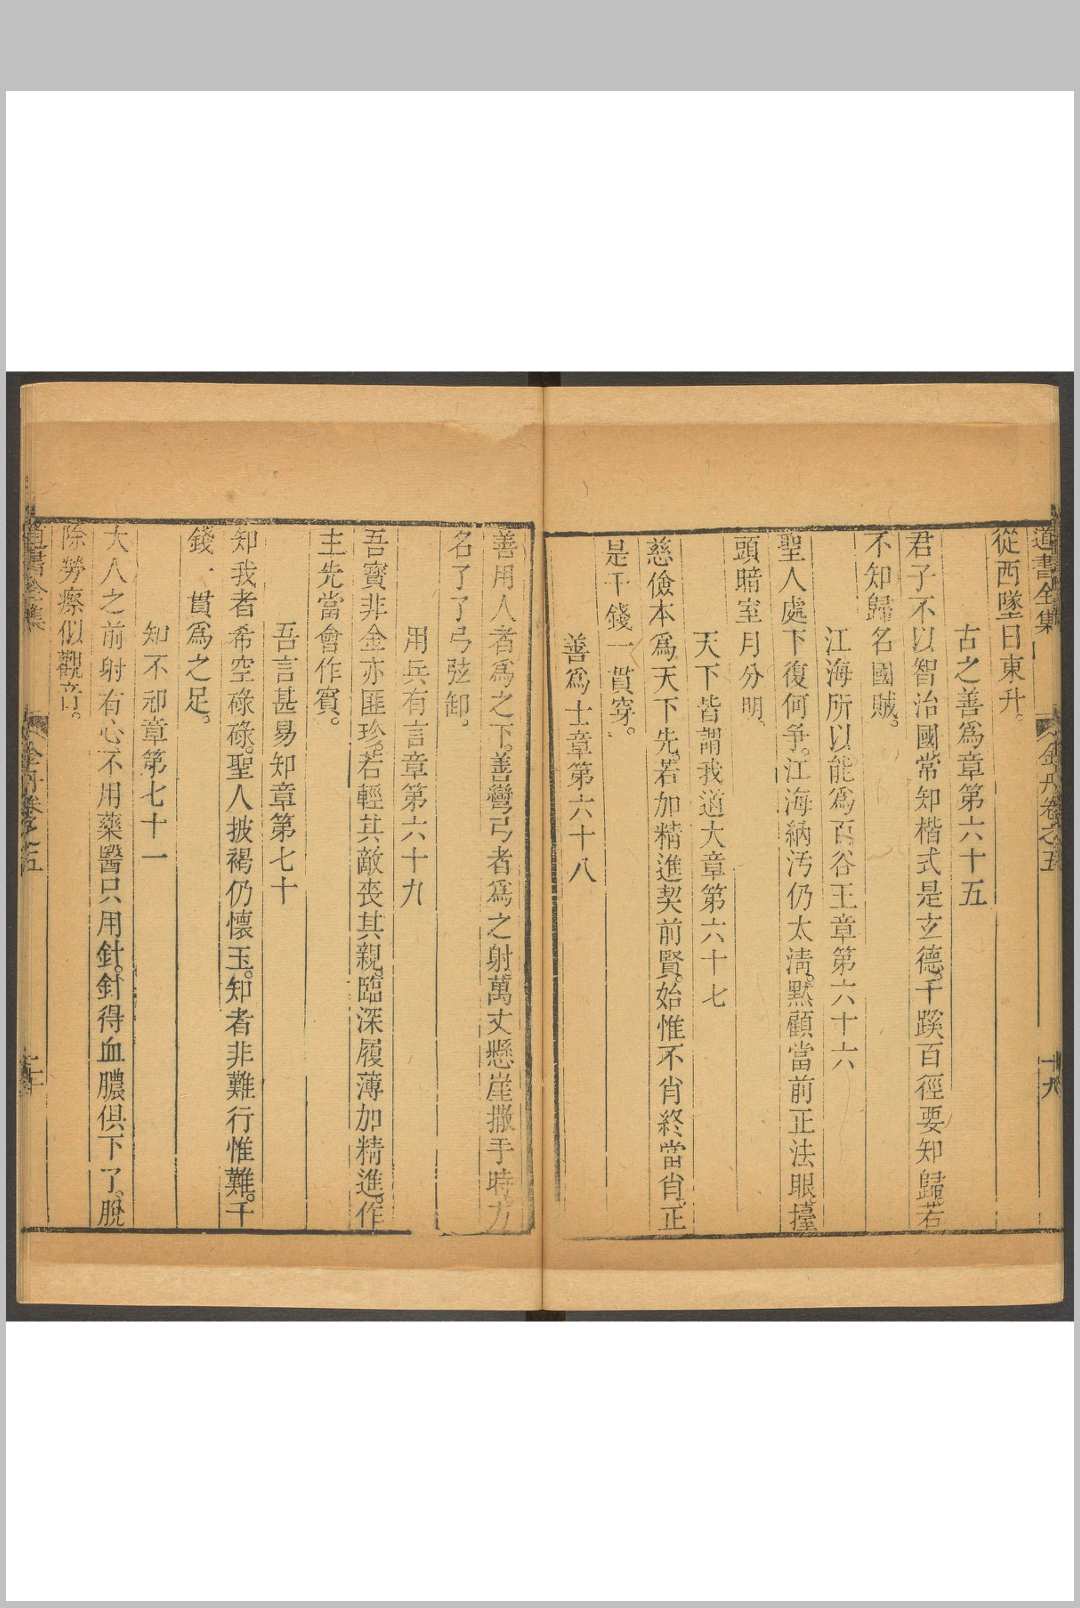 道書全集
金丹卷之五
十九
從西墜日東升。
古之善爲章第六十五
君子不以智治國常知楷式是玄德。千蹊百徑要知歸若
不知歸名國賊。
江海所以能爲百谷王章第六十六
聖人處下復何爭。江海納汚仍太清。默顧當前正法眼擡
頭暗室月分明。
天下皆謂我道大章第六十七
慈儉本爲天下先。若加精進契前賢。始惟不肖終當肖。正
是千錢一貫穿。
善爲士章第六十八
善用人者爲之下。善彎弓者爲之射萬丈懸崖撒手時。力
名了了弓弦卸。
用兵有言章第六十九
吾寶非金亦匪珍。若輕其敵喪其親。臨深履薄加精進。作
主先當會作賓。
吾言甚易知章第七十
知我者希空碌碌。聖人披褐仍懷玉。知者非難行惟難。千
錢一貫爲之足。
知不知章第七十一
大人之前射有心不用藥醫只用針。針得血膿俱下了。脫
除勞瘵似觀音。
道書全集
金丹卷之五